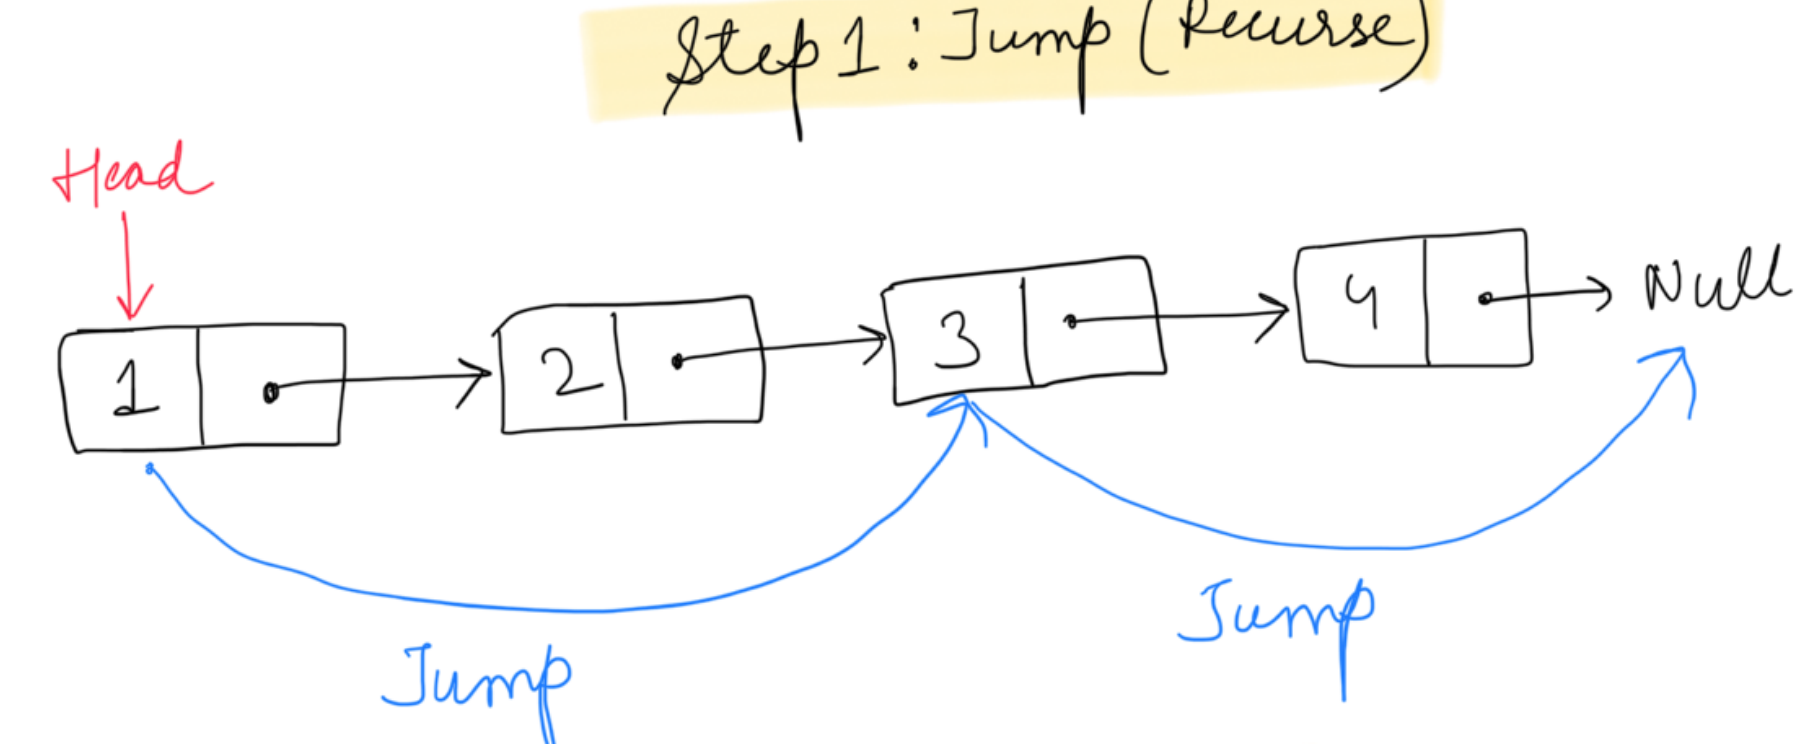 Step 1 : Jump (Recurse)
Head
1 2 3 4 Null
Jump
Jump